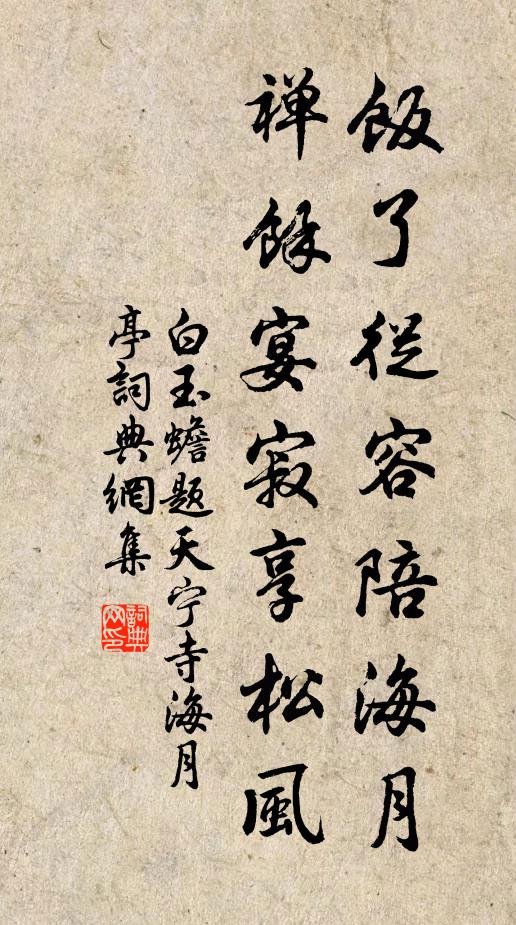 飯了從容陪海月
禅餘宴寂享松風
白玉蟾题天宁寺海月
亭詞典網集
詞典網印